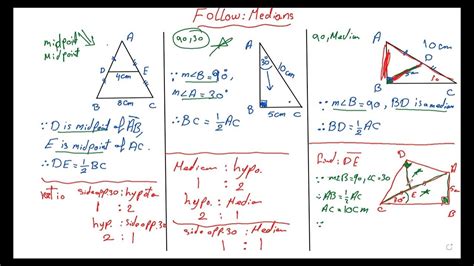 Follow: Medians
midpoint
midpoint
A
D
E
4cm
8cm
B
C
∵ D is midpoint of AB,
E is midpoint of AC.
∴ DE = 1/2 BC
ratio side opp.30 : hypoten
1 : 2
hyp. : side opp. 30
2 : 1
90, 30
A
30
10cm
B
5cm
C
∵ m∠B = 90°,
m∠A = 30°
∴ BC = 1/2 AC
Median : hypo.
1 : 2
hypo. : Median
2 : 1
side opp.30 : Median
1 : 1
90, Median
A
10cm
D
B
C
∵ m∠B = 90, BD is a median
∴ BD = 1/2 AC
find: DE
D
A
E
30°
C
B
5cm
∵ m∠B = 90, C = 30
∴ AB = 1/2 AC
AC = 10cm